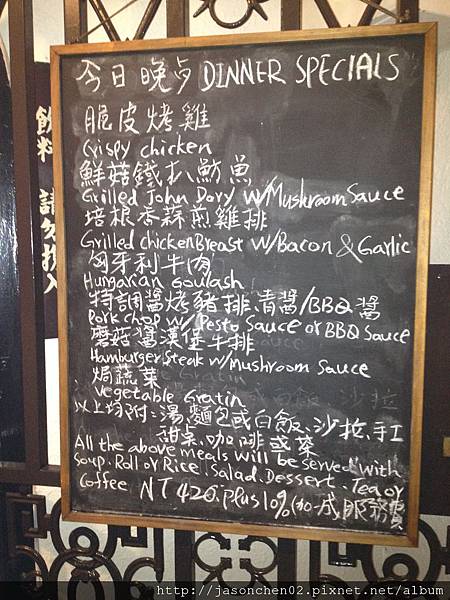 今日晚点 DINNER SPECIALS
脆皮烤雞
Crispy chicken
鮮菇鐵扒魴魚
Grilled John Dory w/Mushroom Sauce
培根香蒜煎雞排
Grilled chicken Breast w/Bacon & Garlic
匈牙利牛肉
Hungarian Goulash
特調醬烤豬排.青醬/BBQ醬
Pork chop w/ Pesto Sauce or BBQ Sauce
蘑菇醬漢堡牛排
Hamburger Steak w/mushroom Sauce
焗蔬菜
Vegetable Gratin
以上均附:湯.麵包或白飯.沙拉.手工
甜桌.咖啡或茶
All the above meals will be served with
Soup.Roll or Rice.Salad.Dessert.Tea or
Coffee NT 420.plus 10% (加一成服務費)
飲料 請勿
http://jasonchen02.pixnet.net/album